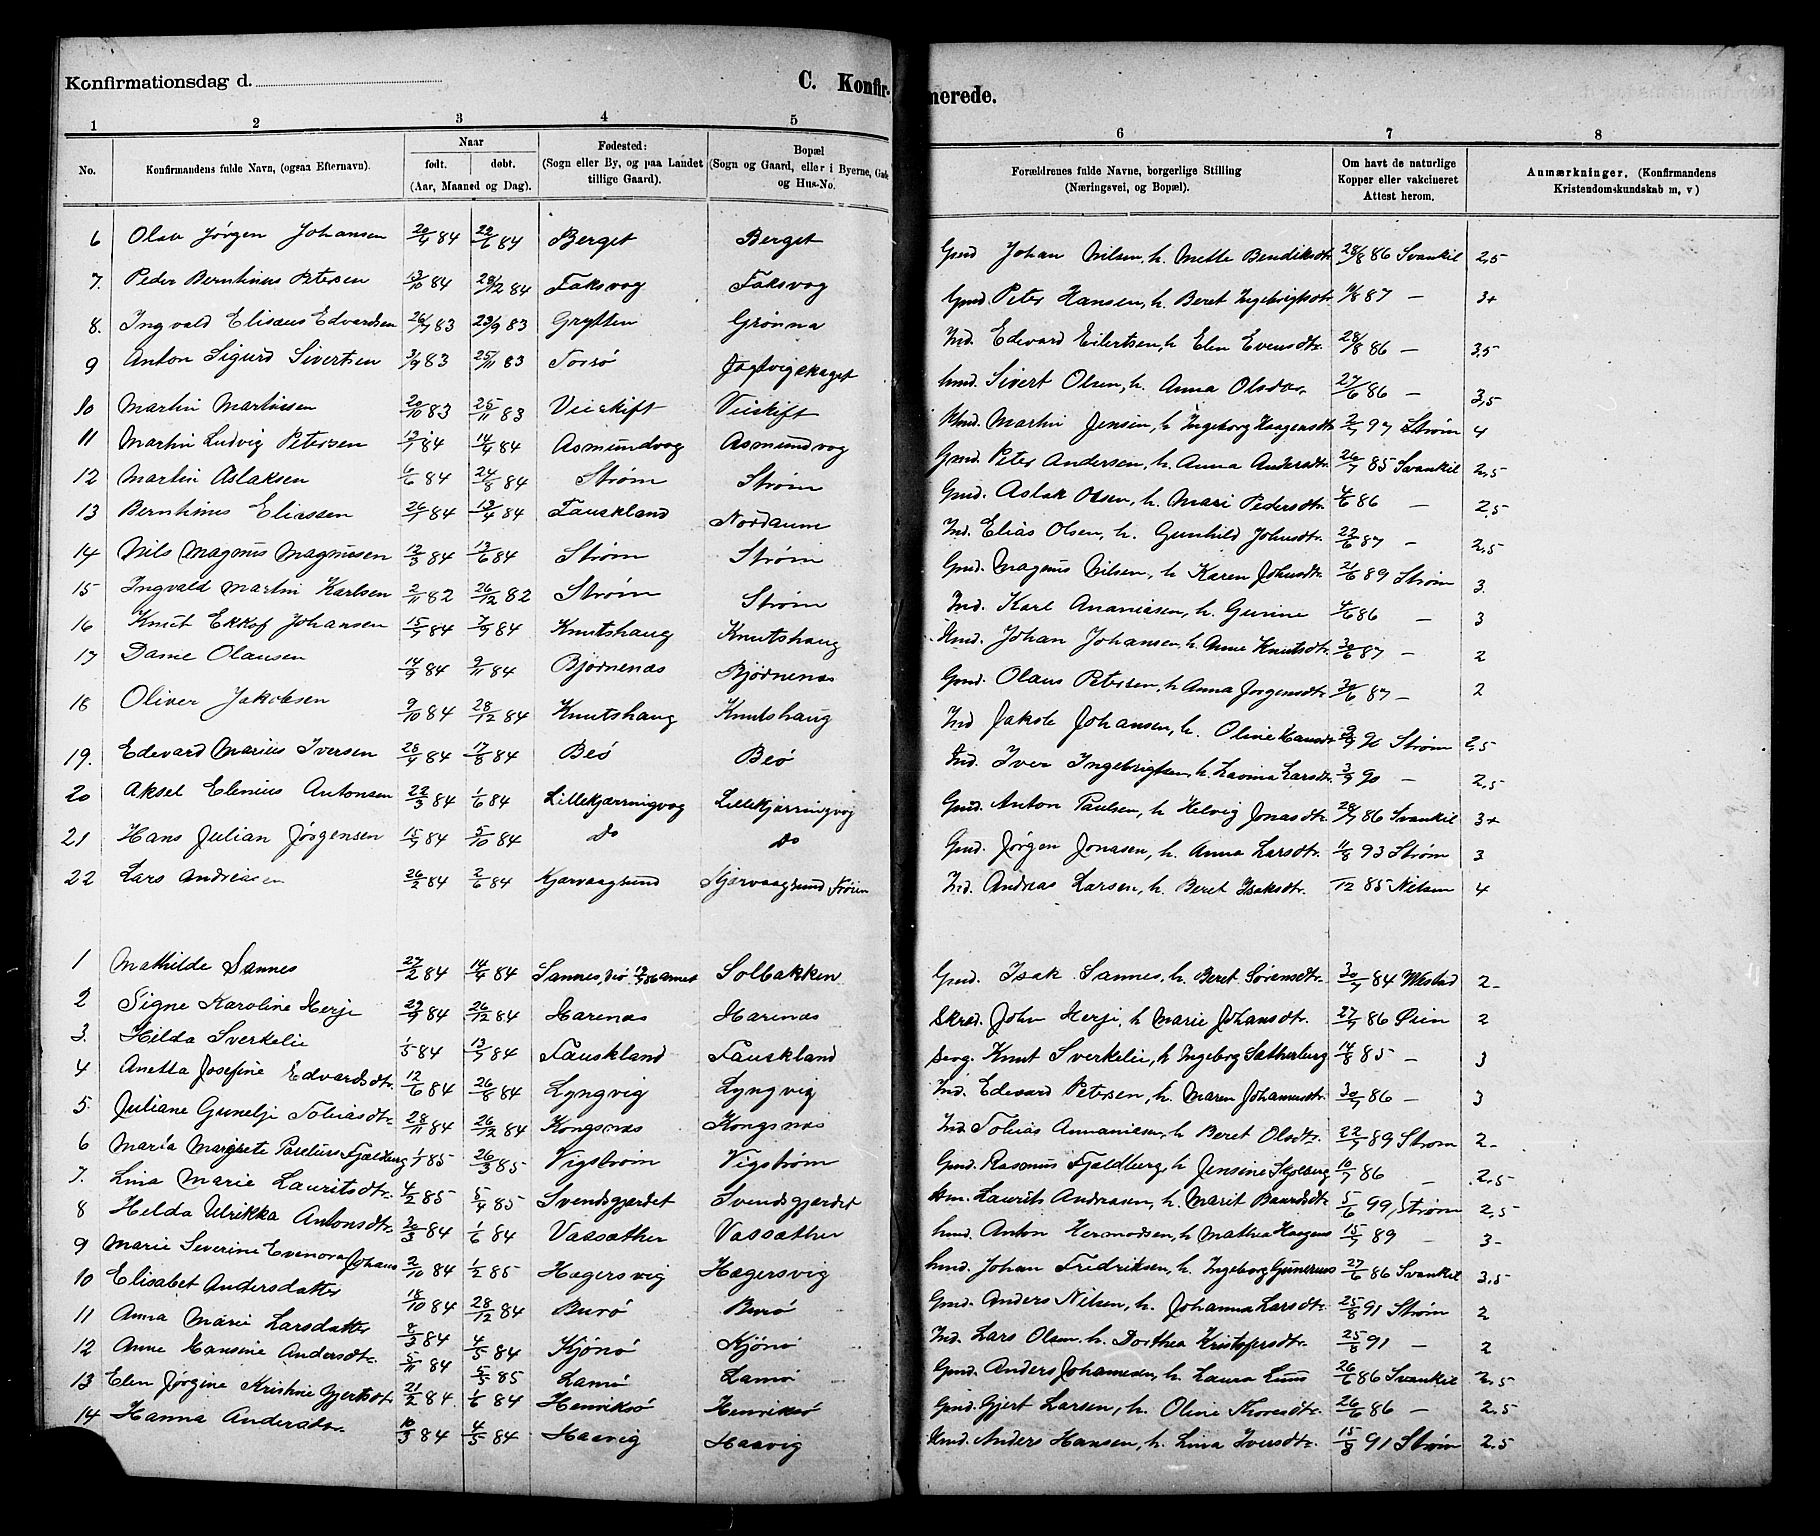 Konfirmationsdag d.
C. Konfir-
merede.
1 2 3 4 5 6 7 8
No. Konfirmandens fulde Navn, (ogsaa Efternavn). Naar født. døbt. (Aar, Maaned og Dag). Fødested: (Sogn eller By, og paa Landet tillige Gaard). Bopæl (Sogn og Gaard, eller i Byerne, Gade og Hus-No. Forældrenes fulde Navne, borgerlige Stilling (Næringsvei, og Bopæl). Om havt de naturlige Kopper eller vakcineret Attest herom. Anmærkninger. (Konfirmandens Kristendomskundskab m, v)
6 Olav Jørgen Johansen 20/4 84 22/6 84 Berget Berget Gmd Johan Nilsen, h. Mette Bendiksdtr 28/8 86 Svankil 2,5
7. Peder Bernhinus Petersen 13/10 84 28/12 84 Faksvog Faksvog Gmd. Peter Hansen, h. Beret Ingebrigtsdtr 11/8 87 — 3+
8. Ingvald Elisæus Edvardsen 26/7 83 23/9 83 Grytten Grønna Ind. Edevard Eilertsen, h. Elen Evensdtr. 28/8 86 — 3,5
9 Anton Sigurd Sivertsen 3/9 83 25/11 83 Torsø Jøstvigskaget Sivert Olsen, h. Anna Olsdtr. 27/6 86 — 3,5
10 Martin Martinsen 20/10 83 25/11 83 Veiskift Veiskift Martin Jensen, h Ingeborg Haagensdtr 2/7 97 Strøm 4
11 Martin Ludvig Petersen 13/1 84 14/4 84 Asmundvog Asmundvog Gmd. Peter Andersen, h. Anna Andersdtr. 26/7 85 Svankil 2,5
12 Martin Aslaksen 6/6 84 24/8 84 Strøm Strøm Gmd. Aslak Olsen, h. Mari Pedersdtr. 4/6 86 — 2,5
13 Bernhinus Eliassen 26/1 84 13/4 84 Fauskland Nordaune Ind. Elias Olsen, h. Gunhild Johnsdtr. 22/6 87 - 2,5
14 Nils Magnus Magnusen 12/3 84 13/6 84 Strøm Strøm Gmd. Magnus Nilsen, h Karen Johnsdtr. 21/6 89 Strøm 3.
15 Ingvald Martin Karlsen 2/11 82 26/12 82 Strøm Strøm Ind. Karl Ananiasen, h. Gunine 4/6 86 — 3
16 Knut Ekkof Johansen 15/7 84 7/9 84 Knutshaug Knutshaug Johan Johansen, h. Anne Knutsdtr. 30/6 87 - 2
17 Olausen 14/9 84 9/11 84 Bjørnenæs Bjørnenæs Gmd. Olaus Petersen, h Anna Jørgensdtr. 30/6 87 - 2
18 Oliver Jakobsen 9/10 84 28/12 84 Knutshaug Knutshaug Ind Jakob Johansen, h. Oline Hansdtr 90 Strøm 2,5
19. Edevard Marius Iversen 28/4 84 17/8 84 Beø Beø Ind. Iver Ingebrigtsen, h. Lavina Larsdtr. 3/7 90 — 2,5
20 Aksel Elenius Antonsen 22/3 84 1/6 84 Lillekjærringvog Lillekjærringvog Gmd. Anton Paulsen, h Helvig Jonasdtr. 28/7 86 Svankil 3+
21 Hans Julian Jørgensen 15/7 84 5/10 84 do do Gmd. Jørgen Jonasen, h. Anna Larsdtr. 11/8 93 Strøm 3
22 Lars Andreasen 26/2 84 2/6 84 Kjærvaagsund Kjærvaagsund Strøm Ind. Andreas Larsen, h. Beret Isaksdtr. /12 85 Nilsen 4
1 Mathilde Sannes 27/2 84 14/4 84 Sannes, Solbakken Gmd. Isak Sannes, h. Beret Sørensdtr. 30/7 84 2-
2 Signe Karoline Herje 29/9 84 26/12 84 Harenæs Harenæs Skræd. John Herje, h Marie Johansdtr. 27/7 86 Øien 2
3. Hilda Sverkelie 1/5 84 13/7 84 Fauskland Fauskland Knut Sverkelie, h Ingeborg 14/8 85 — 3
4 Anetta Josefine Edvardsdtr. 12/6 84 26/8 84 Lyngvig Lyngvig Ind. Edevard Petersen, h. Maren Johannesdtr. 30/7 86 — 3
5. Juliane Gunelje Tobiasdtr. 28/11 84 26/12 84 Kongsnæs Kongsnæs Ind. Tobias Annaniasen, h Beret Olsdtr. 22/7 89 Strøm 2-
6 Maria Margrete Fjeldberg 1/1 85 26/3 85 Vigstrøm Vigstrøm Gmd. Rasmus Fjeldberg, h Jensine 10/7 86 — 2,5
7. Lina Marie Lauritsdtr. 4/2 85 5/4 85 Svendsgjerdet Svendsgjerdet Laurits Andreasen, h Marit Baardsdtr 5/6 99, Strøm 2,5
8 Helda Ulrikka Antonsdtr. 20/3 84 1/6 84 Vassæther Vassæther Anton Hermodsen, h Mathea Haagens 15/7 89 — 3-
9 Marie Severine Evenora Johans 2/10 84 1/2 85 Hægersvig Hægersvig Johan Fredriksen, h. Ingeborg Gunerius 27/6 86 Svankil 3,5
10 Elisabet Andersdatter 18/10 84 28/12 84 Burø Burø Gmd. Anders Nilsen, h. Johanna Larsdtr. 25/8 91 Strøm 2
11 Anna Marie Larsdatter 8/3 84 4/5 84 Kjønø Kjønø Ind. Lars Olsen, h. Dorthea Kristofersdtr. 25/8 91 — 2
12 Anne Hansine Andersdtr. 5/11 84 5/5 85 Lamø Lamø Gmd. Anders Johannesen, h. Laura Lund 26/6 86 Svankil 2,5
13 Elen Jørgine Kristine Gjertsdtr. 21/2 84. 1/6 84 Henriksø Henriksø Gmd. Gjert Larsen, h. Oline 26/6 86 — 2.5
14 Hanna Andersdtr. 10/3 84 4/5 84 Haavig Haavig Anders Hansen, h. Lina Iversdtr. 15/8 91 Strøm 2.5